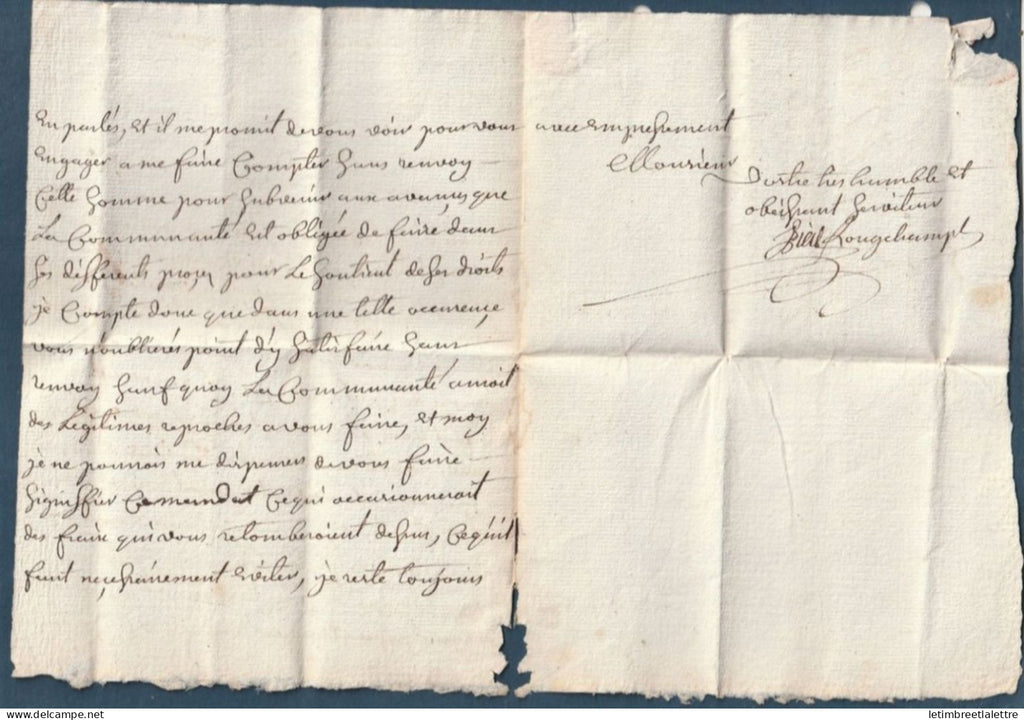 En parlés, et il me promit de vous voir pour vous
Engager a me faire Compter sans renvoy
Cette somme pour subvenir aux avances que
La Communauté est obligée de faire dans
ses différents procez pour Le soutient de ses droits
je Compte donc que dans une telle occurence
vous n'oublierés point d'y satisfaire sans
renvoy sauf quoy La Communauté auroit
des Légitimes reproches a vous faire, et moy
je ne pourrois me dispenser de vous faire
signiffier Ce mandat Ce qui occasionneroit
des fraix qui vous retomberoient dessus, Ce qu'il
faut necessairement éviter, je reste toujours
avec Empressement
Monsieur
Votre tres humble et
obeissant serviteur
Longchampt
letimbreetlalettre